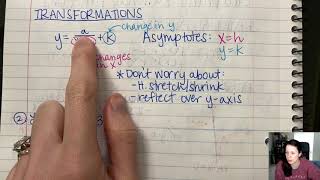 TRANSFORMATIONS
change in y
y = a + k Asymptotes: x=h
y=k
changes in x
*Don't worry about:
- H. stretch/shrink
- reflect over y-axis
2